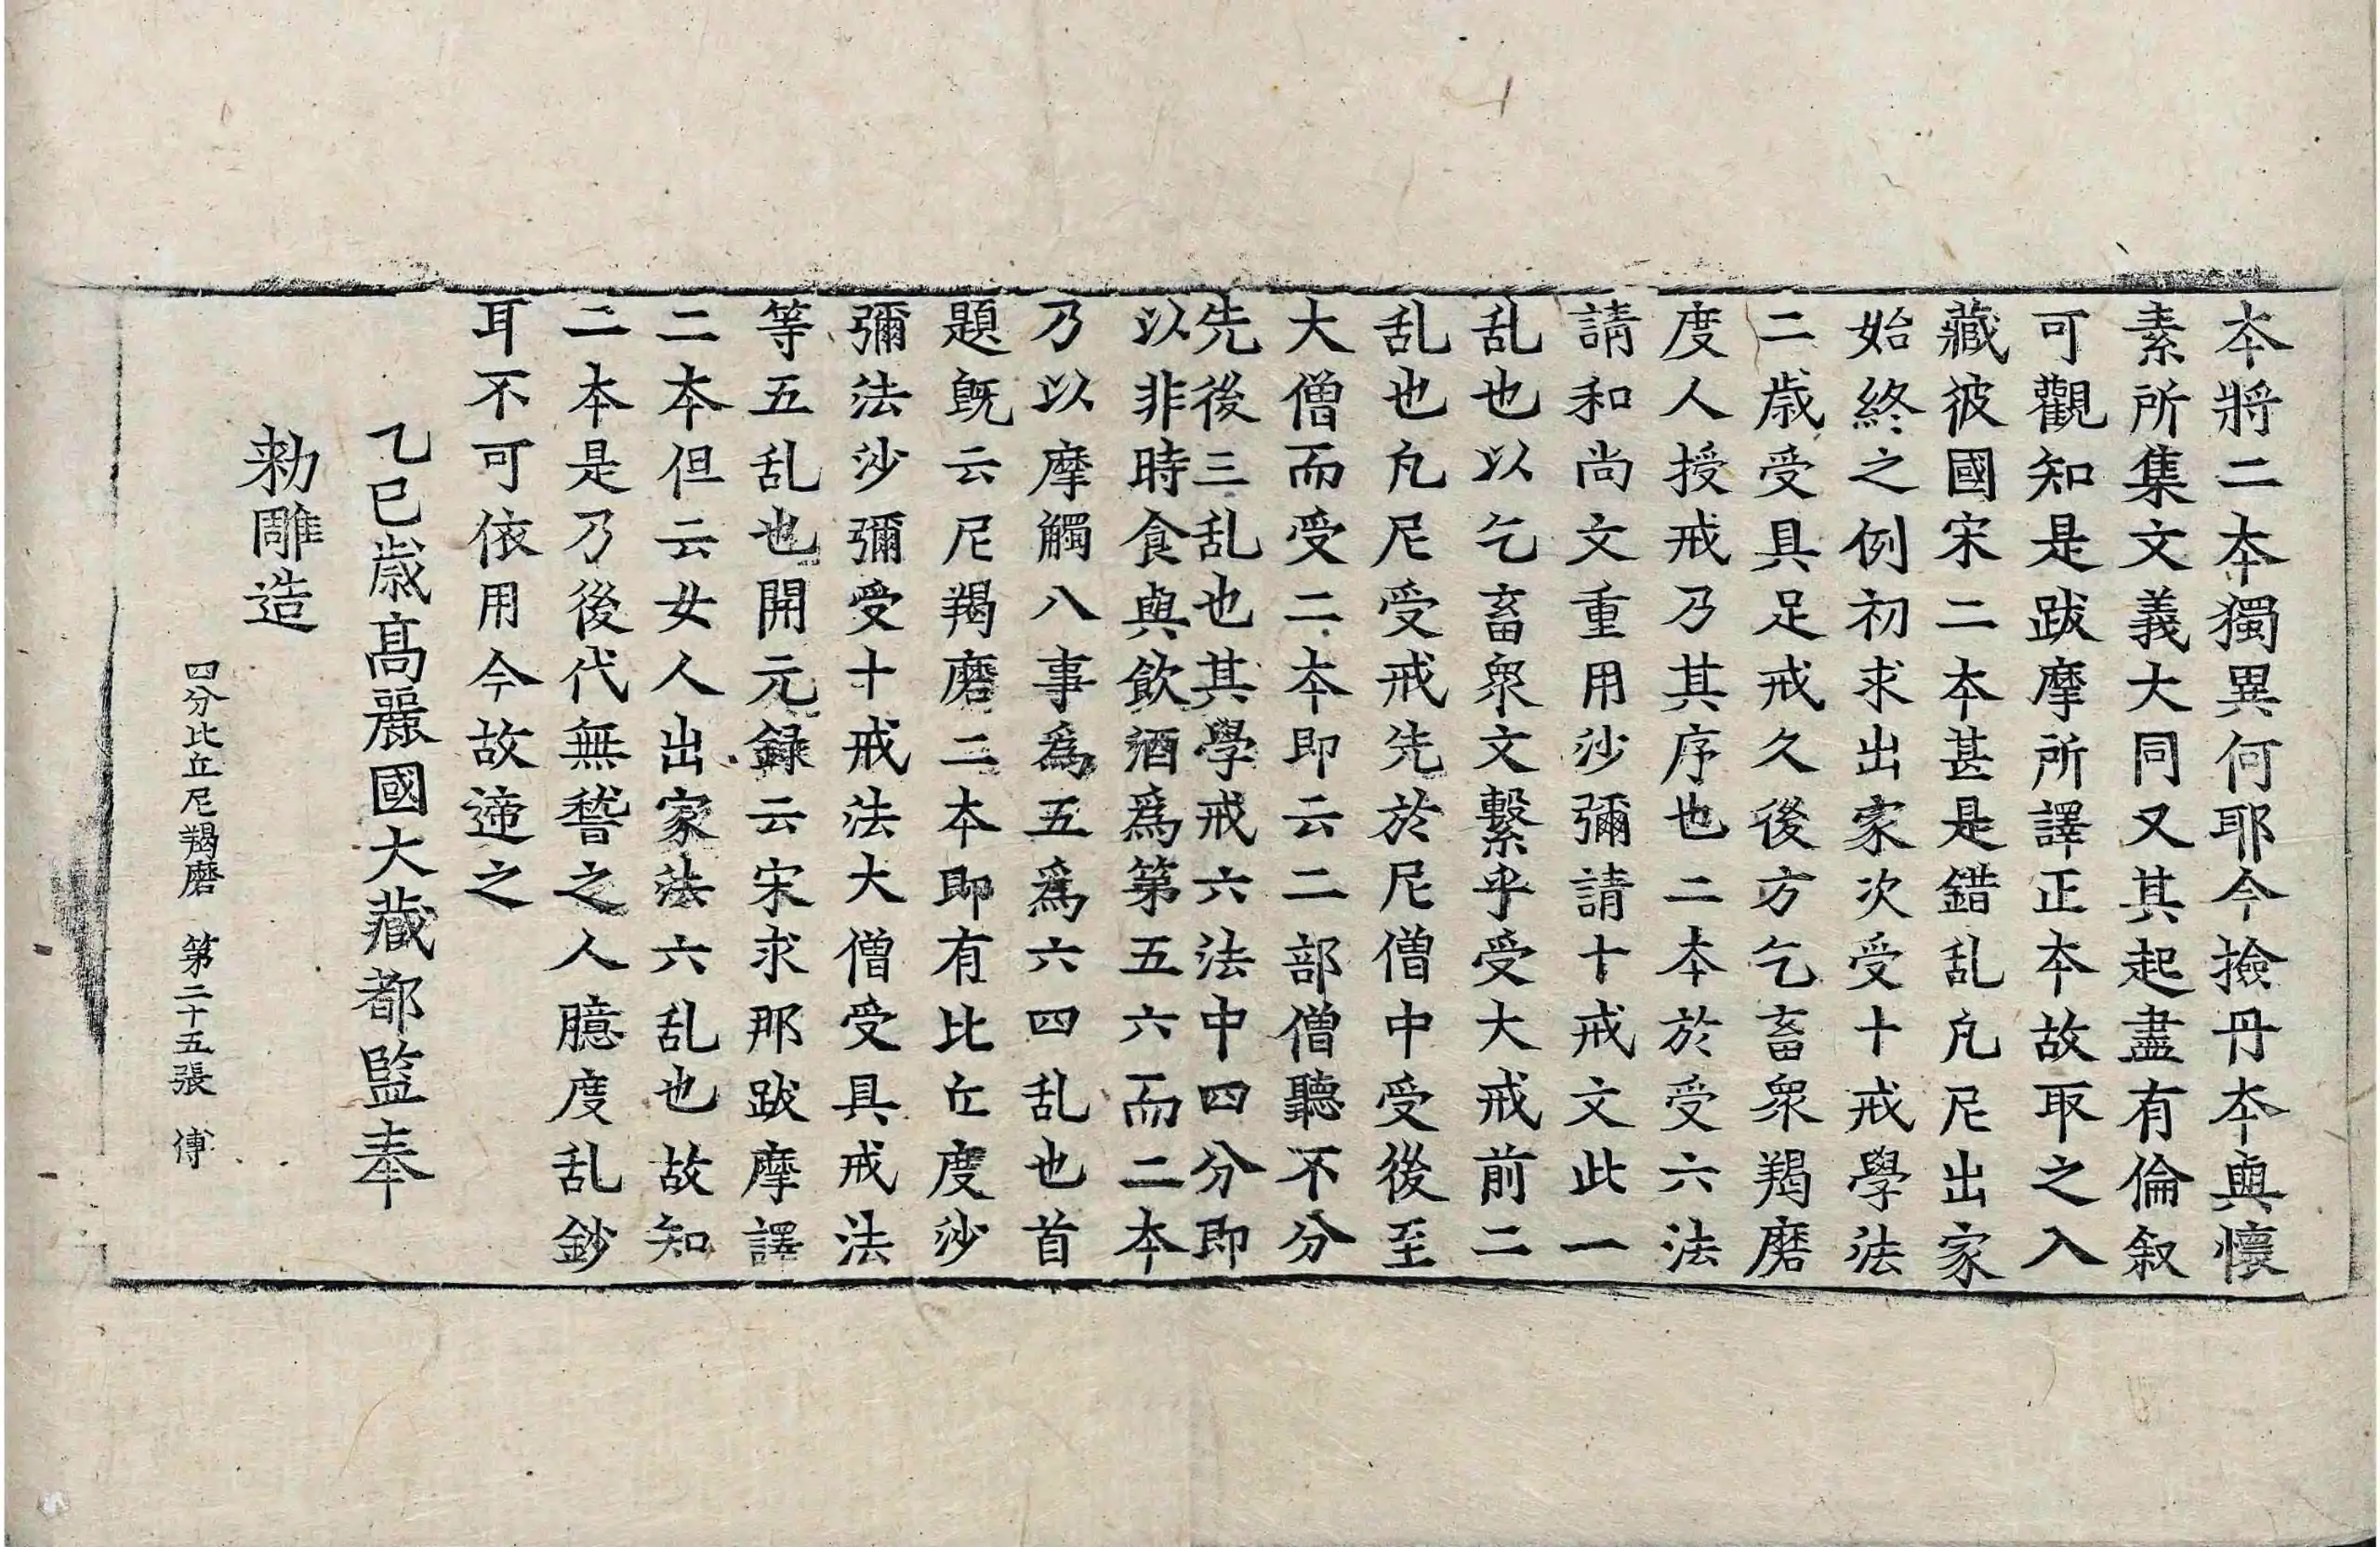 本將二本獨異何耶今撿丹本與懷
素所集文義大同又其起盡有倫叙
可觀知是跋摩所譯正本故取之入
藏彼國宋二本甚是錯乱凡尼出家
始終之例初求出家次受十戒學法
二歲受具足戒久後方乞畜衆羯磨
度人授戒乃其序也二本於受六法
請和尚文重用沙彌請十戒文此一
乱也以乞畜衆文繫乎受大戒前二
乱也凡尼受戒先於尼僧中受後至
大僧而受二本即云二部僧聽不分
先後三乱也其學戒六法中四分即
以非時食與飲酒爲第五六而二本
乃以摩觸八事爲五爲六四乱也首
題旣云尼羯磨二本即有比丘度沙
彌法沙彌受十戒法大僧受具戒法
等五乱也開元録云宋求那跋摩譯
二本但云女人出家法六乱也故知
二本是乃後代無嵆之人臆度乱鈔
耳不可依用今故遆之
乙巳歲高麗國大藏都監奉
勑雕造
四分比丘尼羯磨 第二十五張 傅